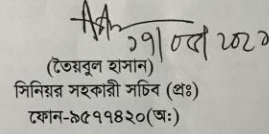 ২১/০৫/২০২০
(তৈয়বুল হাসান)
সিনিয়র সহকারী সচিব (প্রঃ)
ফোন-৯৫৭৭৪২০(অঃ)